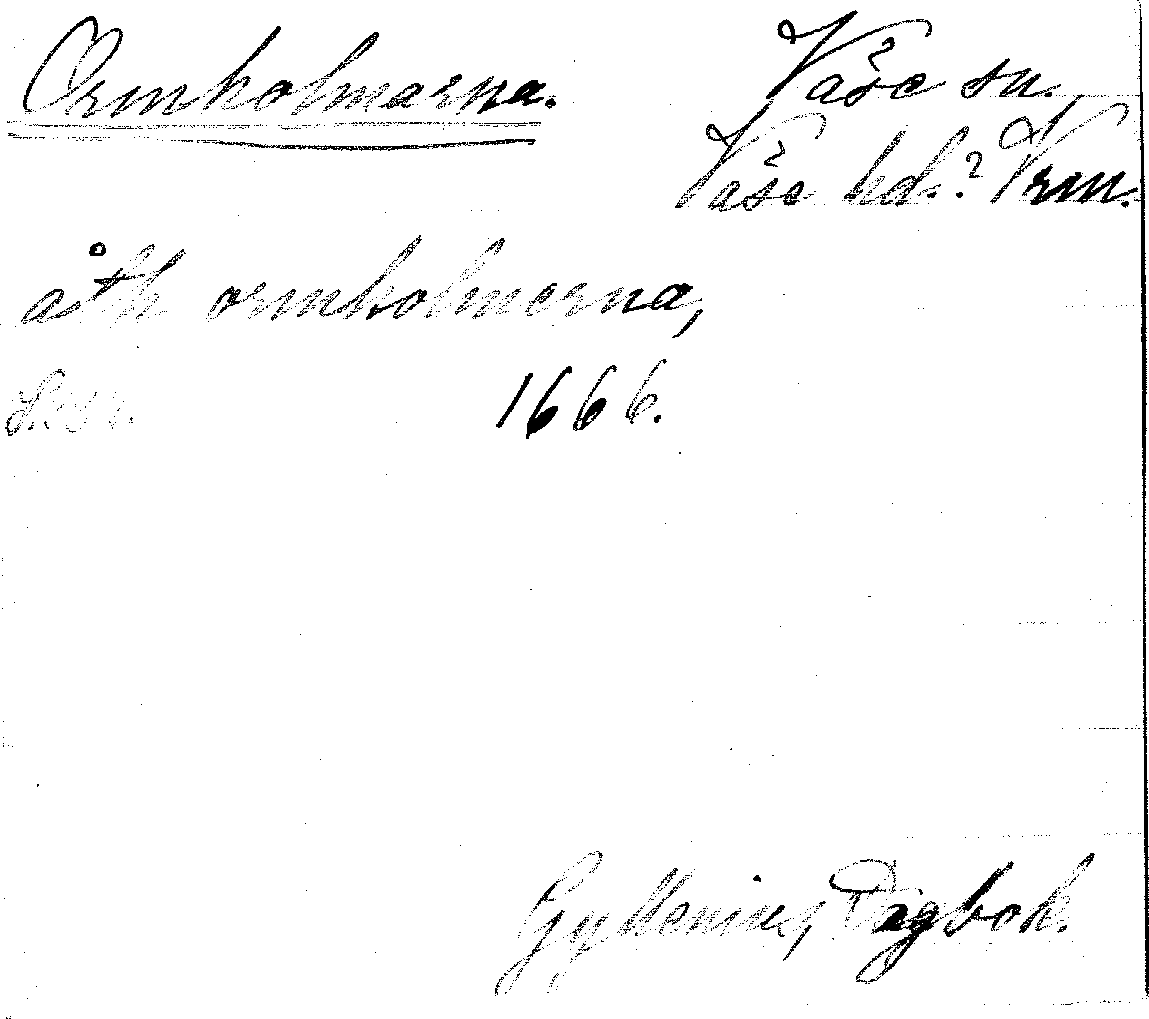 Ormholmarna.
Väse sn.
Väse hd.? Vrm.
åth ormholmerna,
1666.
Gyllenius, Dagbok.